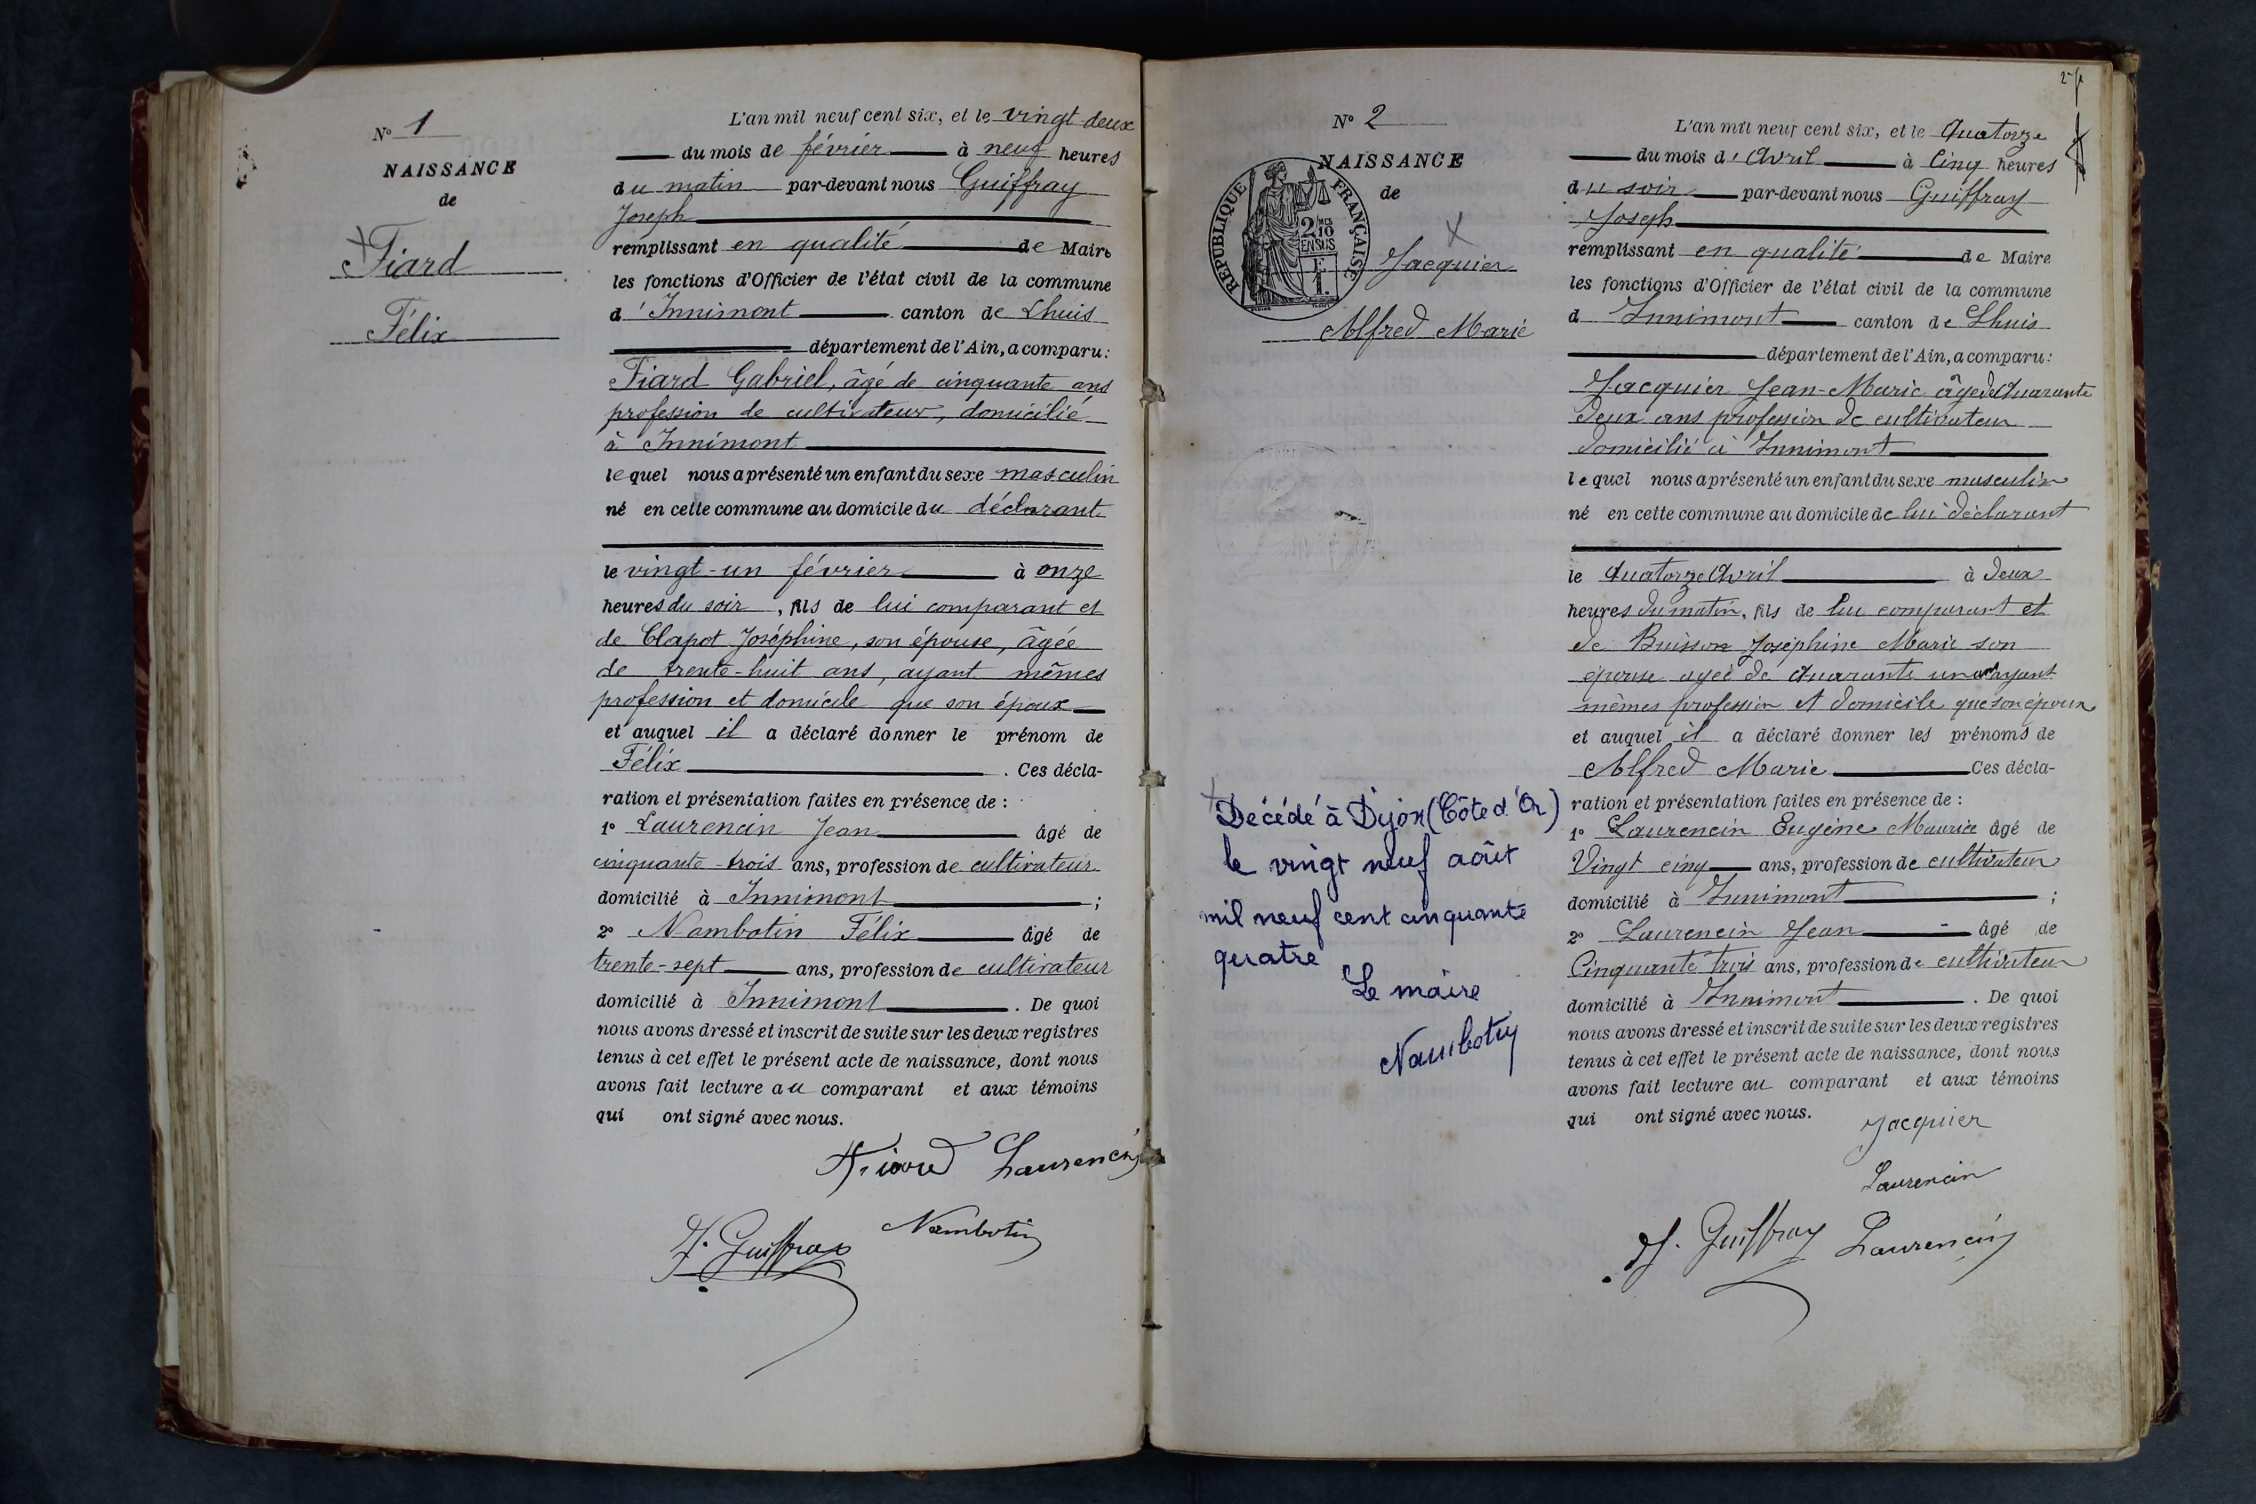 N° 1
NAISSANCE
de
Fiard
Félix
L'an mil neuf cent six, et le vingt-deux
du mois de février à neuf heures
du matin par-devant nous Guiffray
Joseph
remplissant en qualité de Maire
les fonctions d'Officier de l'état civil de la commune
d'Innimont canton de Lhuis
département de l'Ain, a comparu:
Fiard Gabriel, âgé de cinquante ans
profession de cultivateur, domicilié
à Innimont
lequel nous a présenté un enfant du sexe masculin
né en cette commune au domicile du déclarant
le vingt-un février à onze
heures du soir, fils de lui comparant et
de Clapot Joséphine, son épouse, âgée
de trente-huit ans, ayant mêmes
profession et domicile que son époux
et auquel il a déclaré donner le prénom de
Félix. Ces décla-
ration et présentation faites en présence de :
1° Laurencin Jean âgé de
cinquante-trois ans, profession de cultivateur
domicilié à Innimont ;
2° Nambotin Félix âgé de
trente-sept ans, profession de cultivateur
domicilié à Innimont. De quoi
nous avons dressé et inscrit de suite sur les deux registres
tenus à cet effet le présent acte de naissance, dont nous
avons fait lecture au comparant et aux témoins
qui ont signé avec nous.
Fiard Laurencin
J. Guiffray Nambotin
N° 2
NAISSANCE
de
RÉPUBLIQUE FRANÇAISE
2/10
EN SUS
1 F.
Jacquier
Alfred Marie
Décédé à Dijon (Côte d'Or)
le vingt neuf août
mil neuf cent cinquante
quatre
Le maire
Nambotin
L'an mil neuf cent six, et le Quatorze
du mois d'Avril à Cinq heures
du soir par-devant nous Guiffray
Joseph
remplissant en qualité de Maire
les fonctions d'Officier de l'état civil de la commune
d Innimont canton de Lhuis
département de l'Ain, a comparu:
Jacquier Jean-Marie âgé de Quarante
deux ans profession de cultivateur
domicilié à Innimont
lequel nous a présenté un enfant du sexe masculin
né en cette commune au domicile de lui déclarant
le Quatorze Avril à deux
heures du matin, fils de lui comparant et
de Buisson Joséphine Marie son
épouse agée de Quarante un ans ayant
mêmes profession et domicile que son époux
et auquel il a déclaré donner les prénoms de
Alfred Marie Ces décla-
ration et présentation faites en présence de :
1° Laurencin Eugène Maurice âgé de
Vingt cinq ans, profession de cultivateur
domicilié à Innimont ;
2° Laurencin Jean âgé de
Cinquante trois ans, profession de cultivateur
domicilié à Innimont. De quoi
nous avons dressé et inscrit de suite sur les deux registres
tenus à cet effet le présent acte de naissance, dont nous
avons fait lecture au comparant et aux témoins
qui ont signé avec nous.
Jacquier
Laurencin
J. Guiffray Laurencin